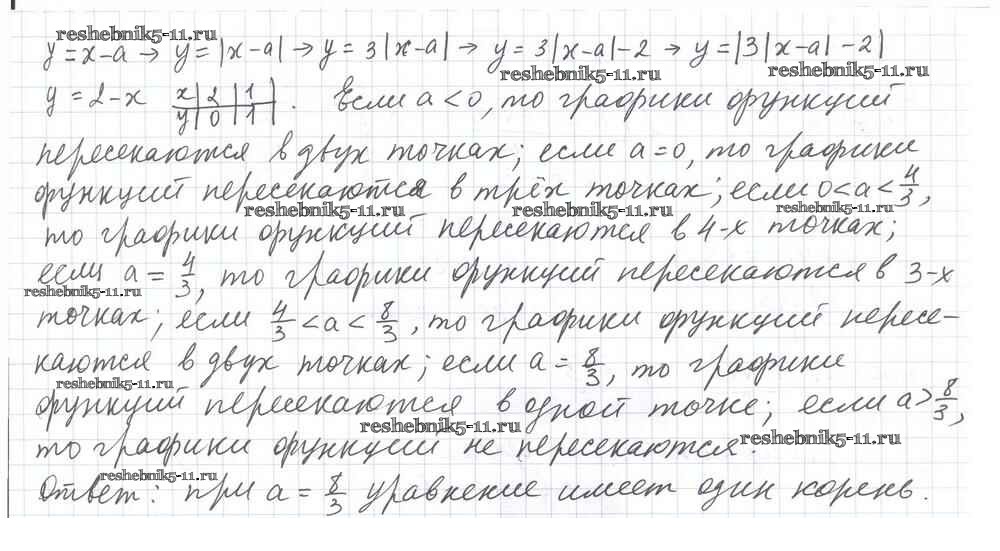 reshebnik5-11.ru
y = x-a → y = |x-a| → y = 3|x-a| → y = 3|x-a|-2 → y = |3|x-a|-2|
reshebnik5-11.ru reshebnik5-11.ru
y = 2-x x|2|1| y|0|1| . Если a < 0, то графики функций
пересекаются в двух точках; если a = 0, то графики
функций пересекаются в трёх точках; если 0 < a < 4/3,
reshebnik5-11.ru reshebnik5-11.ru reshebnik5-11.ru
то графики функций пересекаются в 4-х точках;
если a = 4/3, то графики функций пересекаются в 3-х
reshebnik5-11.ru
точках; если 4/3 < a < 8/3, то графики функций пересе-
каются в двух точках; если a = 8/3, то графики
reshebnik5-11.ru
функций пересекаются в одной точке; если a > 8/3,
reshebnik5-11.ru
то графики функций не пересекаются.
reshebnik5-11.ru
reshebnik5-11.ru
Ответ: при a = 8/3 уравнение имеет один корень.